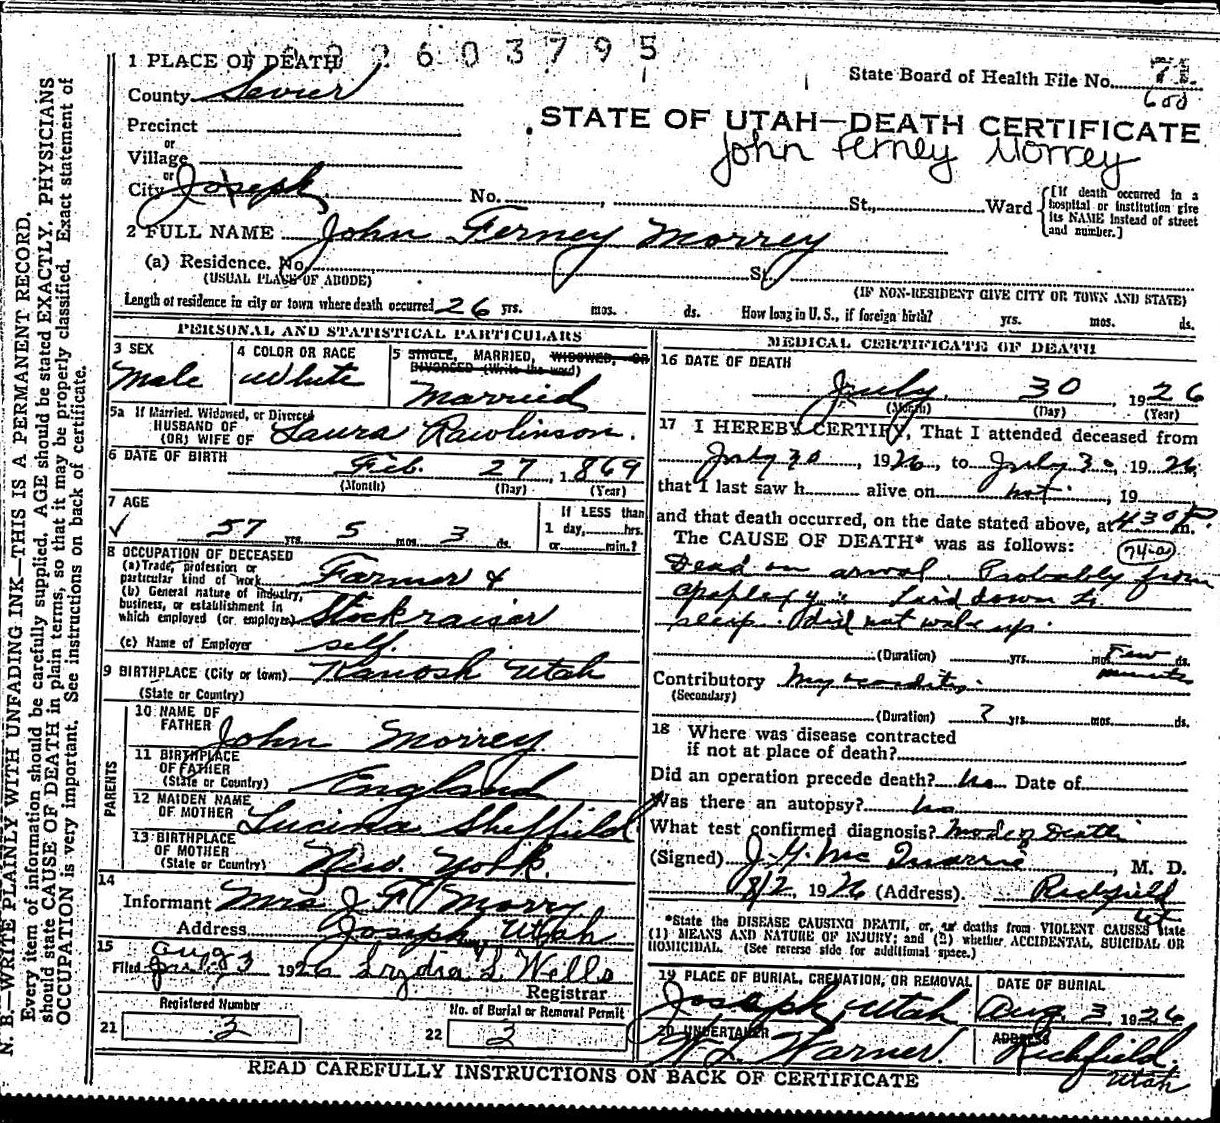 2603795
1 PLACE OF DEATH
State Board of Health File No. 71
600
County Sevier
STATE OF UTAH—DEATH CERTIFICATE
Precinct
John Ferney Morrey
or
Village
or
City Joseph No. , St., Ward
[If death occurred in a hospital or institution give its NAME instead of street and number.]
2 FULL NAME John Ferney Morrey
(a) Residence. No. St.
(USUAL PLACE OF ABODE) (IF NON-RESIDENT GIVE CITY OR TOWN AND STATE)
Length of residence in city or town where death occurred 26 yrs. mos. ds. How long in U. S., if foreign birth? yrs. mos. ds.
PERSONAL AND STATISTICAL PARTICULARS
3 SEX
Male
4 COLOR OR RACE
White
5 SINGLE, MARRIED, WIDOWED, OR
DIVORCED (Write the word)
Married
5a If Married, Widowed, or Divorced
HUSBAND OF
(OR) WIFE OF Laura Rawlinson.
6 DATE OF BIRTH Feb. 27, 1869
(Month) (Day) (Year)
7 AGE
57 yrs. 5 mos. 3 ds.
If LESS than
1 day, hrs.
or min.?
8 OCCUPATION OF DECEASED
(a) Trade, profession or
particular kind of work Farmer &
(b) General nature of industry,
business, or establishment in
which employed (or employer) Stockraiser
(c) Name of Employer self.
9 BIRTHPLACE (City or town) Kanosh Utah
(State or Country)
PARENTS
10 NAME OF
FATHER John Morrey
11 BIRTHPLACE
OF FATHER
(State or Country) England
12 MAIDEN NAME
OF MOTHER Lucina Sheffield
13 BIRTHPLACE
OF MOTHER
(State or Country) New York.
14
Informant Mrs J F Morry
Address Joseph Utah
15 Aug 3
Filed 3 1926 Lydia L. Wells
Registrar
Registered Number
21 3
No. of Burial or Removal Permit
22 3
MEDICAL CERTIFICATE OF DEATH
16 DATE OF DEATH
July 30, 1926
(Month) (Day) (Year)
17 I HEREBY CERTIFY, That I attended deceased from
July 30, 1926, to July 30, 1926,
that I last saw h alive on not, 19
and that death occurred, on the date stated above, at 430 P. m.
The CAUSE OF DEATH* was as follows: 74-a
Dead on arival. Probably from
apoplexy. Laid down to
sleep. did not wake up.
(Duration) yrs. mos. ds.
Few minutes
Contributory Myocarditis.
(Secondary)
(Duration) ? yrs. mos. ds.
18 Where was disease contracted
if not at place of death?
Did an operation precede death? No Date of
Was there an autopsy? No
What test confirmed diagnosis? Mode of Death
(Signed) J. G. McQuarrie, M. D.
8/2 1926 (Address) Richfield
Ut
*State the DISEASE CAUSING DEATH, or, in deaths from VIOLENT CAUSES state
(1) MEANS AND NATURE OF INJURY; and (2) whether ACCIDENTAL, SUICIDAL OR
HOMICIDAL. (See reverse side for additional space.)
19 PLACE OF BURIAL, CREMATION, OR REMOVAL
Joseph, Utah
DATE OF BURIAL
Aug. 3, 1926
20 UNDERTAKER
Warner.
ADDRESS
Richfield.
Utah
READ CAREFULLY INSTRUCTIONS ON BACK OF CERTIFICATE
N. B.—WRITE PLAINLY WITH UNFADING INK—THIS IS A PERMANENT RECORD.
Every item of information should be carefully supplied. AGE should be stated EXACTLY. PHYSICIANS
should state CAUSE OF DEATH in plain terms, so that it may be properly classified. Exact statement of
OCCUPATION is very important. See instructions on back of certificate.